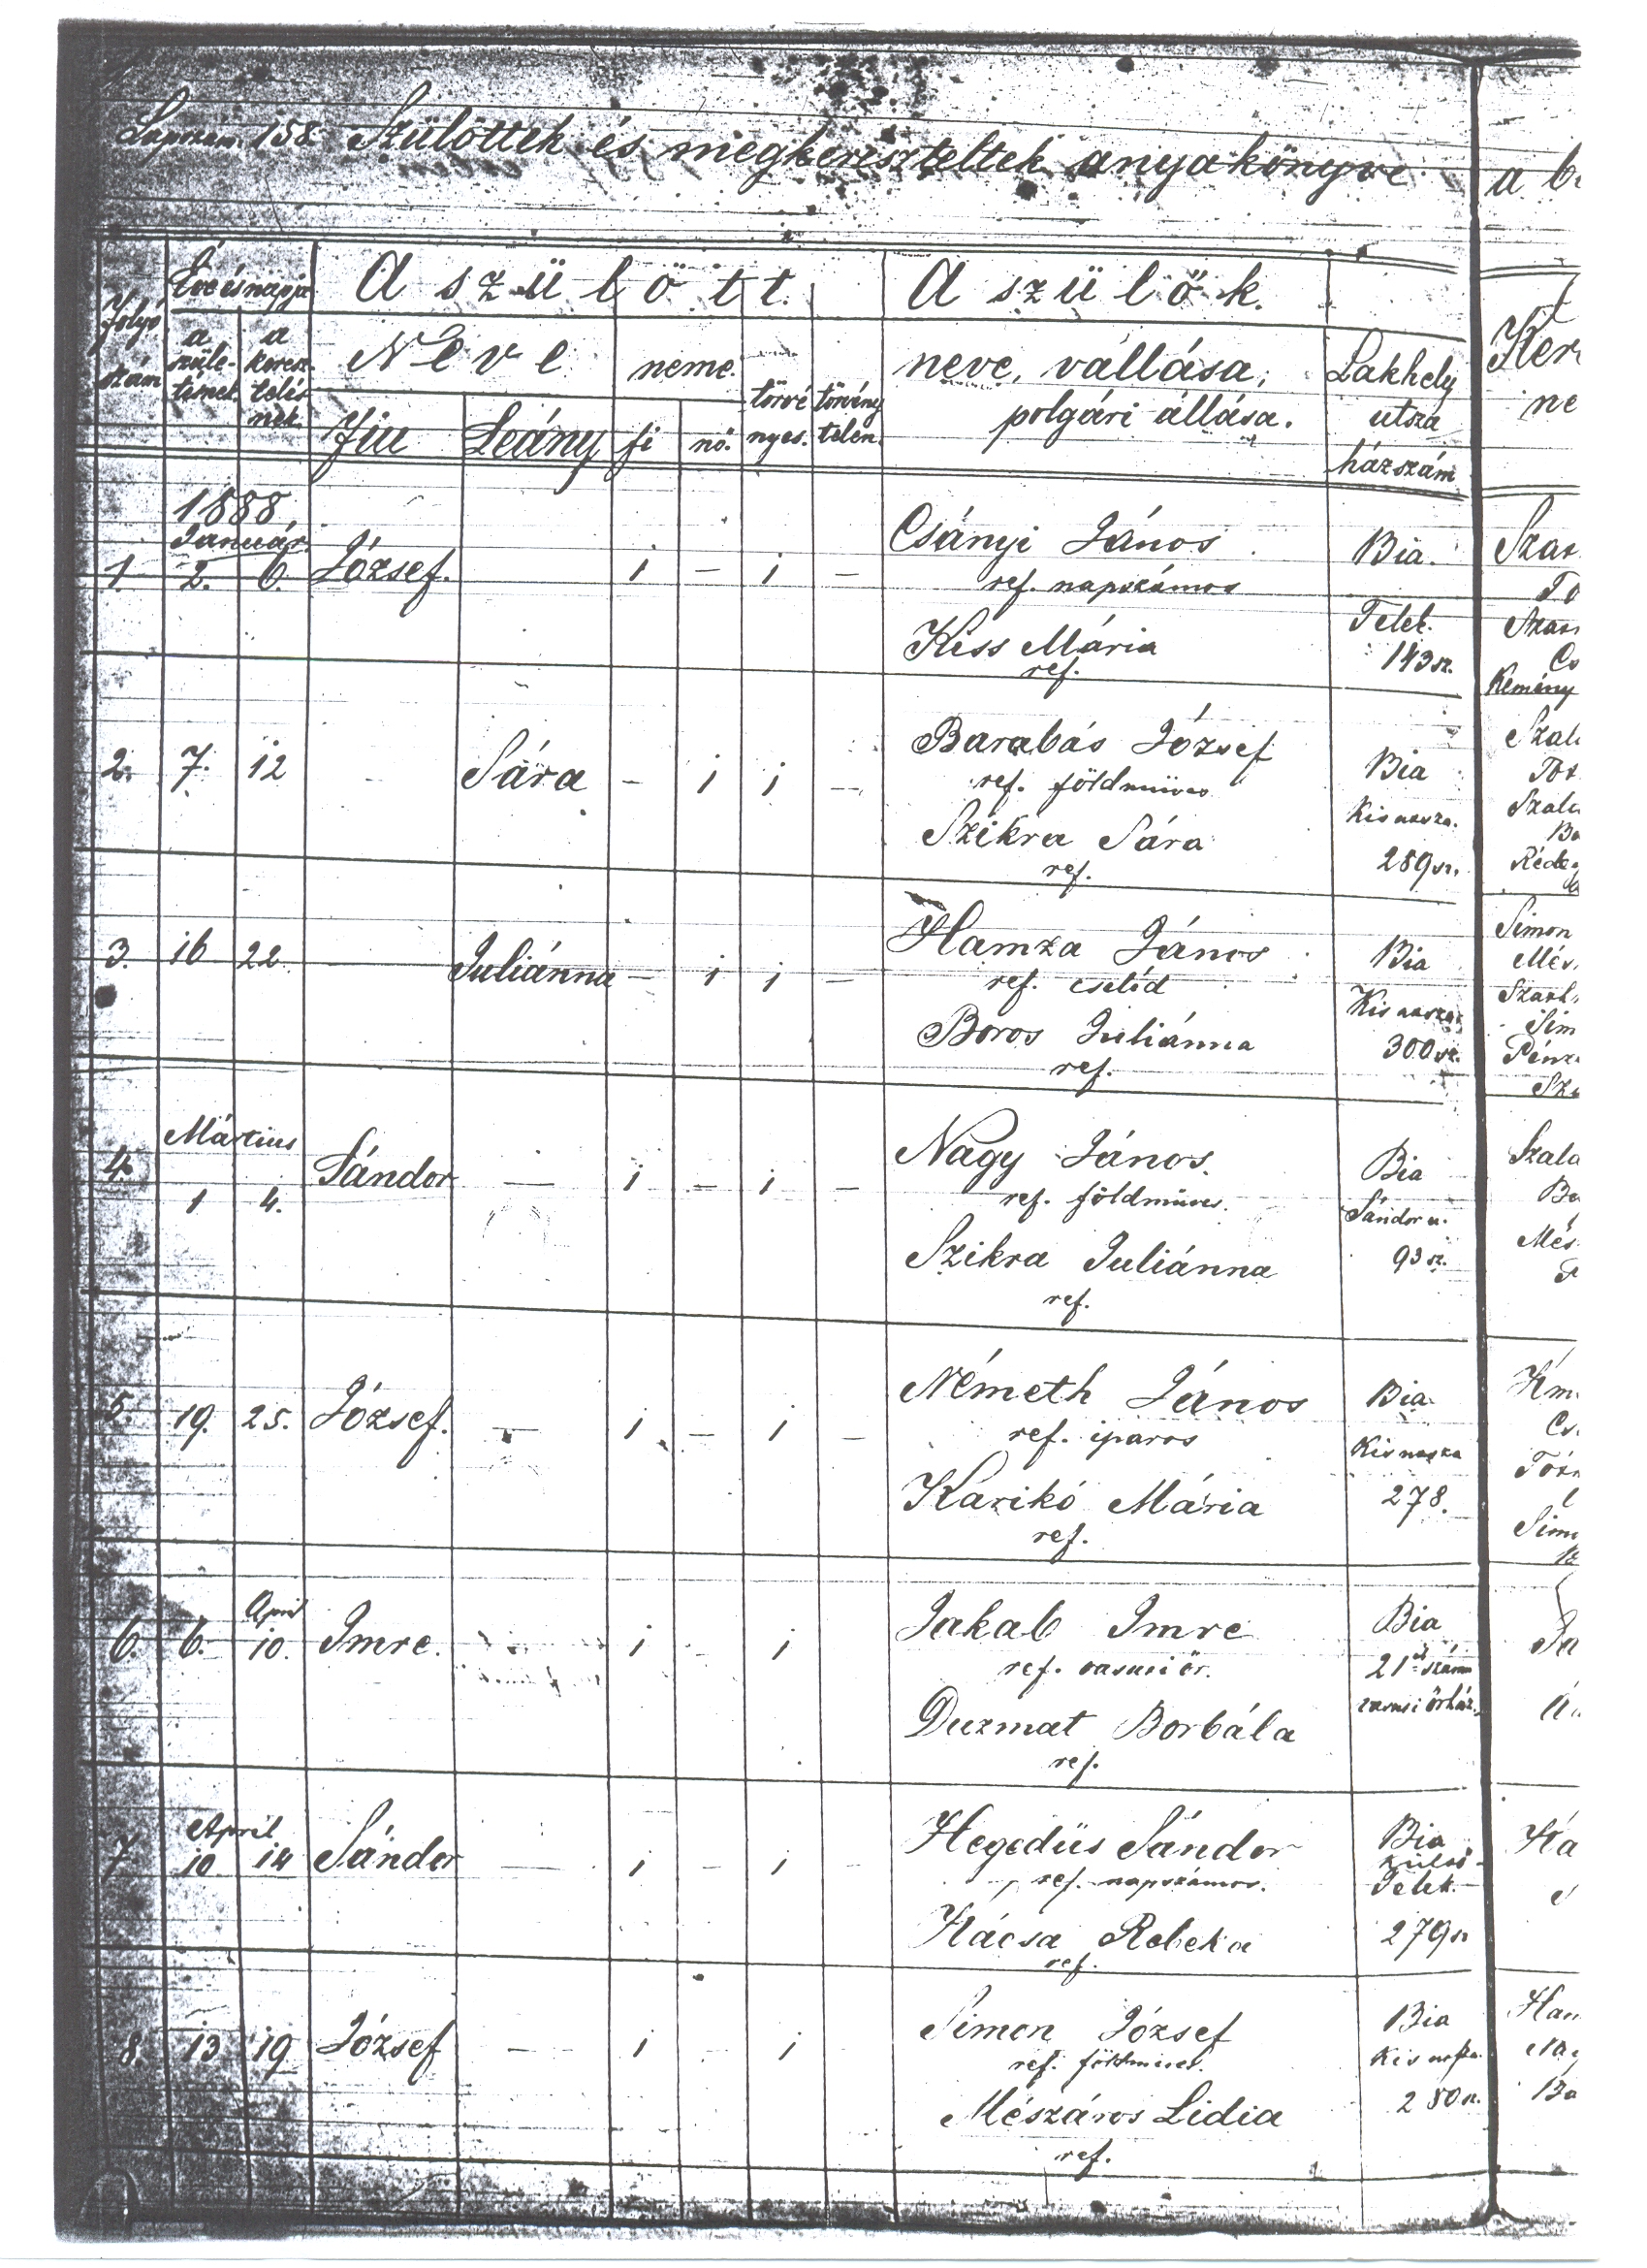 Lapszám 158. Szülöttek és megkereszteltek anyakönyve a b
Folyó szám
Éve és napja
A szülött
A szülők.
a születésnek
a keresztelésnek
Neve
neme.
törvényes.
törvénytelen.
neve, vállása,
polgári állása.
Lakhely
utsza
házszám
Ker
ne
Fiu
Leány
fi
nő.
1888
Január
1. 2. 6. József. 1 – 1 –
Csányi János
ref. napszámos
Kiss Mária
ref.
Bia.
Telek.
143 sz.
Kemény
2. 7. 12 – Sára – 1 1 –
Barabás József
ref. földmüves
Szikra Sára
ref.
Bia
289 sz.
3. 16 22. — Juliánna – 1 1 –
Hamza János
ref. cseléd
Boros Juliánna
ref.
Bia
300 sz.
Simon
Mártius
4. 1 4. Sándor — 1 – 1 –
Nagy János.
ref. földmüves.
Szikra Juliánna
ref.
Bia
Sándor u.
93 sz.
5. 19. 25. József. – 1 – 1 –
Németh János
ref. iparos
Karikó Mária
ref.
Bia
278.
April
6. 6. 10. Imre. 1 – 1
Jakab Imre
ref. vasuti őr.
Duzmat Borbála
ref.
Bia
21 ik számu
vasuti őrház.
April
7. 10 14 Sándor — 1 – 1 –
Hegedüs Sándor
ref. napszámos.
Hácsa Rebeka
ref.
Bia
külső
Telek.
279 sz
8. 13 19 József — 1 – 1
Simon József
ref. földmives.
Mészáros Lidia
ref.
Bia
280 sz.